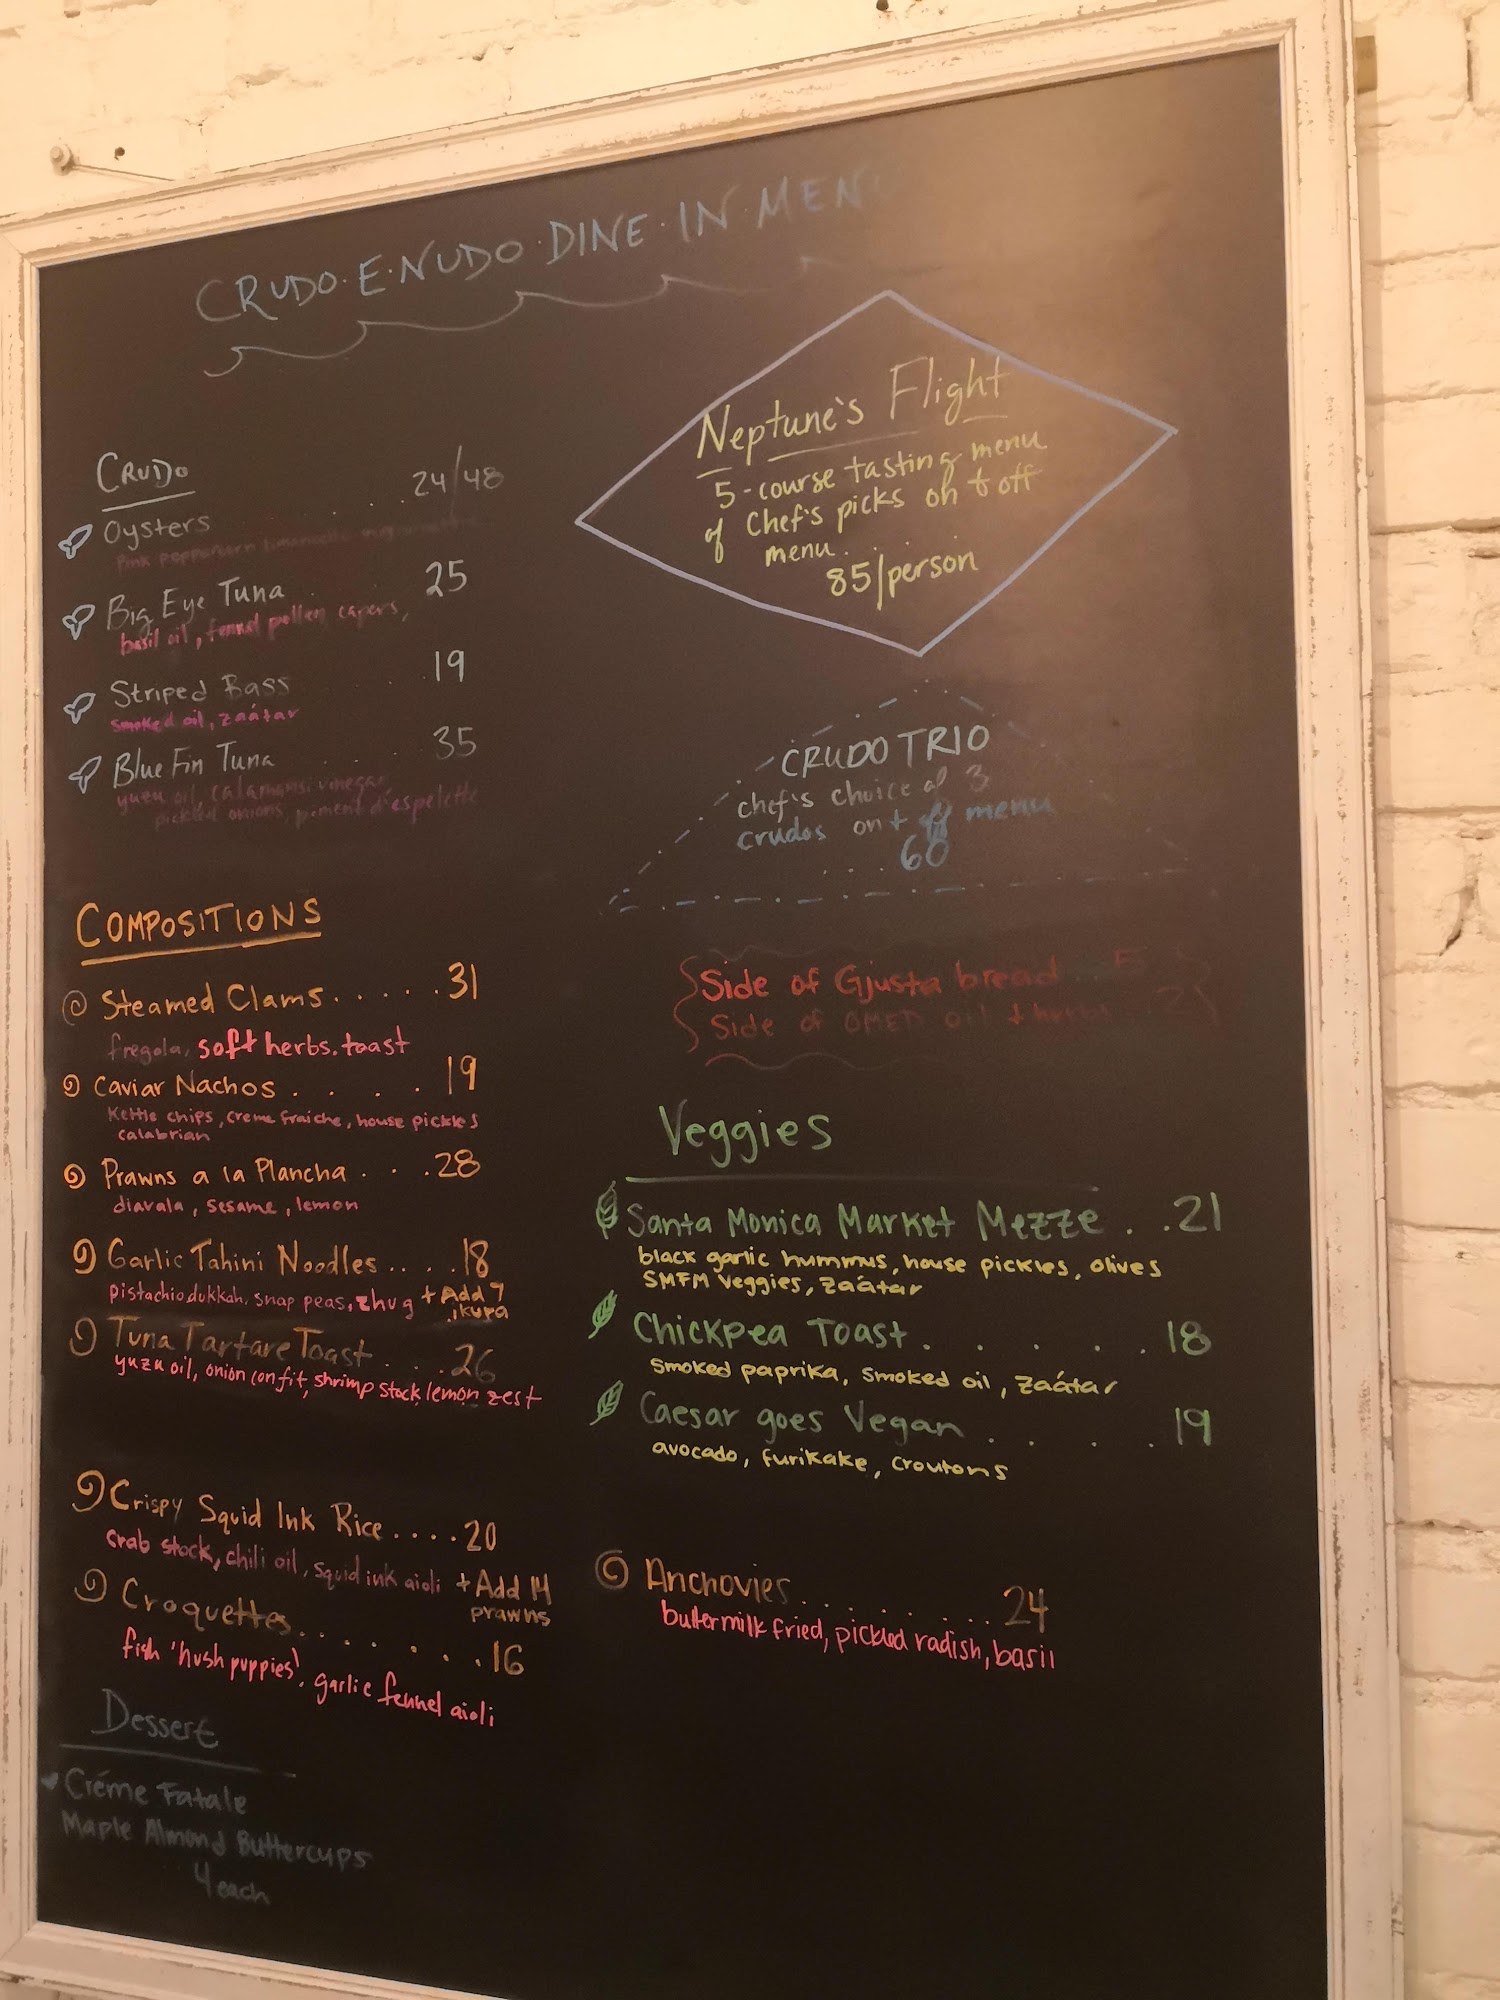 CRUDO·E·NUDO·DINE·IN·MEN
CRUDO
Oysters . . . 24/48
Pink peppercorn
Big Eye Tuna . 25
basil oil, fennel pollen capers,
Striped Bass . . . 19
smoked oil, zaátar
Blue Fin Tuna . . . 35
yuzu oil, calamansi vinegar,
pickled onions, piment d'espelette
COMPOSITIONS
Steamed Clams. . . . . .31
fregola, soft herbs, toast
Caviar Nachos . . . . . 19
Kettle chips, creme fraiche, house pickles
calabrian
Prawns a la Plancha . . . 28
diavala, sesame, lemon
Garlic Tahini Noodles . . . .18
pistachio dukkah, snap peas, zhug + Add 7
ikura
Tuna Tartare Toast . . . 26
yuzu oil, onion confit, shrimp stock, lemon zest
Crispy Squid Ink Rice . . . . 20
crab stock, chili oil, squid ink aioli + Add 14
prawns
Croquettes. . . . . . . . 16
fish 'hush puppies', garlic fennel aioli
Dessert
Créme Fatale
Maple Almond Buttercups
4 each
Neptune's Flight
5-course tasting menu
of Chef's picks on & off
menu. . . . .
85/person
CRUDO TRIO
chef's choice of 3
crudos on + off menu
. . . 60
Side of Gjusta bread . . 5
Side of OMED oil + herbs . . 2
Veggies
Santa Monica Market Mezze . . .21
black garlic hummus, house pickles, olives
SMFM veggies, zaátar
Chickpea Toast . . . . . . 18
smoked paprika, smoked oil, zaátar
Caesar goes Vegan . . . . . 19
avocado, furikake, croutons
Anchovies . . . . . . . . . . 24
buttermilk fried, pickled radish, basil